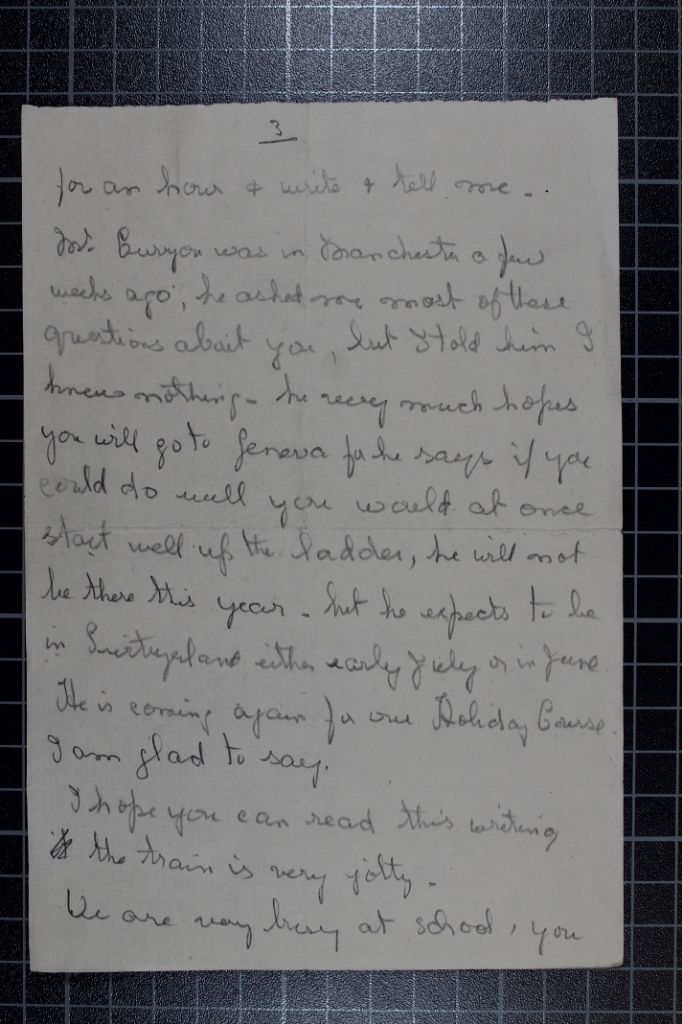 3
for an hour & write & tell me -.
Mr. Curzon was in Manchester a few
weeks ago, he asked me most of these
questions about you, but I told him I
knew nothing - he very much hopes
you will go to Geneva for he says if you
could do well you would at once
start well up the ladder, he will not
be there this year - but he expects to be
in Switzerland either early July or in June
He is coming again for our Holiday Course
I am glad to say.
I hope you can read this writing
the train is very jolty -
We are very busy at school, you